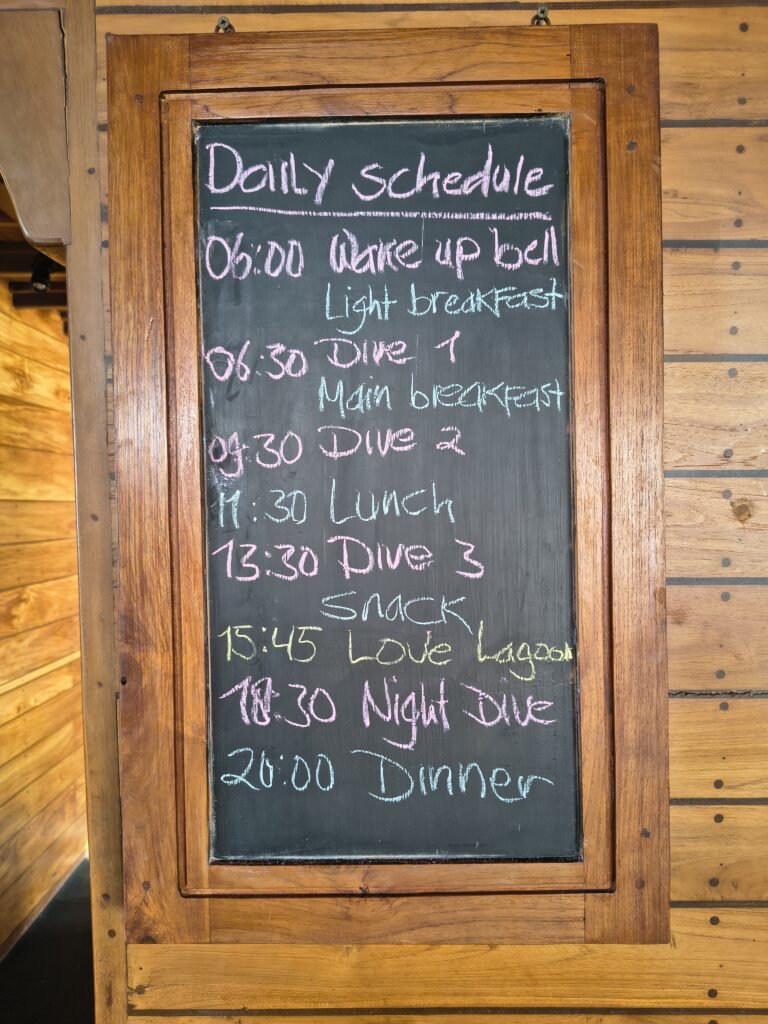 Daily Schedule
06:00 Wake up bell
Light breakfast
06:30 Dive 1
Main breakfast
09:30 Dive 2
11:30 Lunch
13:30 Dive 3
snack
15:45 Love Lagoon
18:30 Night Dive
20:00 Dinner